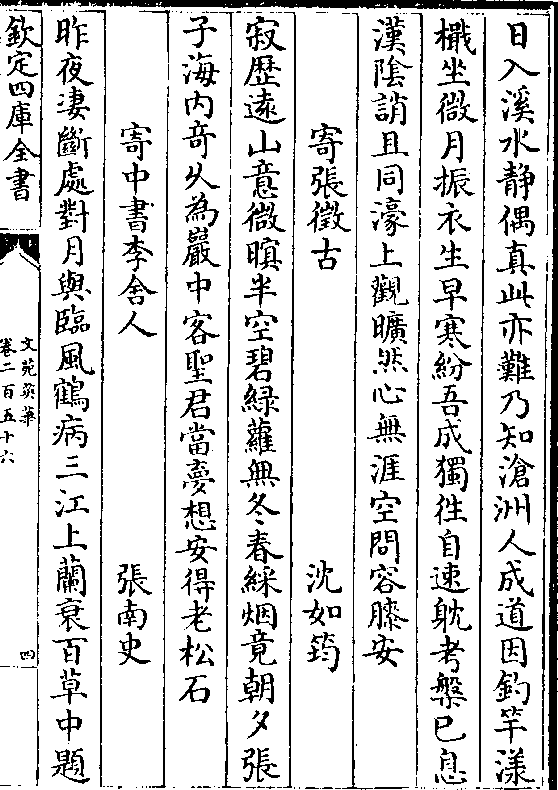 日入溪水静偶真此亦難乃知滄洲人成道因釣竿漾
檝坐微月振衣生早寒紛吾成獨徃自速躭考槃已息
漢陰誚且同濠上觀曠然心無涯空問容膝安
寄張徵古 沈如筠
寂歴遠山意微暝半空碧緑蘿無冬春綵烟竟朝夕張
子海内竒乆為巖中客聖君當夢想安得老松石
寄中書李舍人 張南史
昨夜凄斷處對月與臨風鶴病三江上蘭衰百草中題
欽定四庫全書
文苑英華
卷二百五十六
四